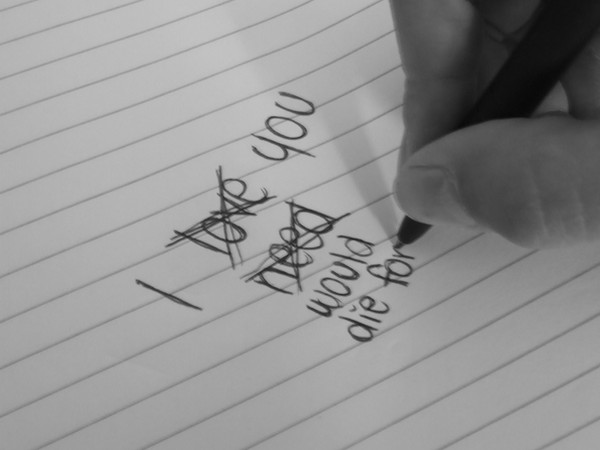 I love you
need
would
die for